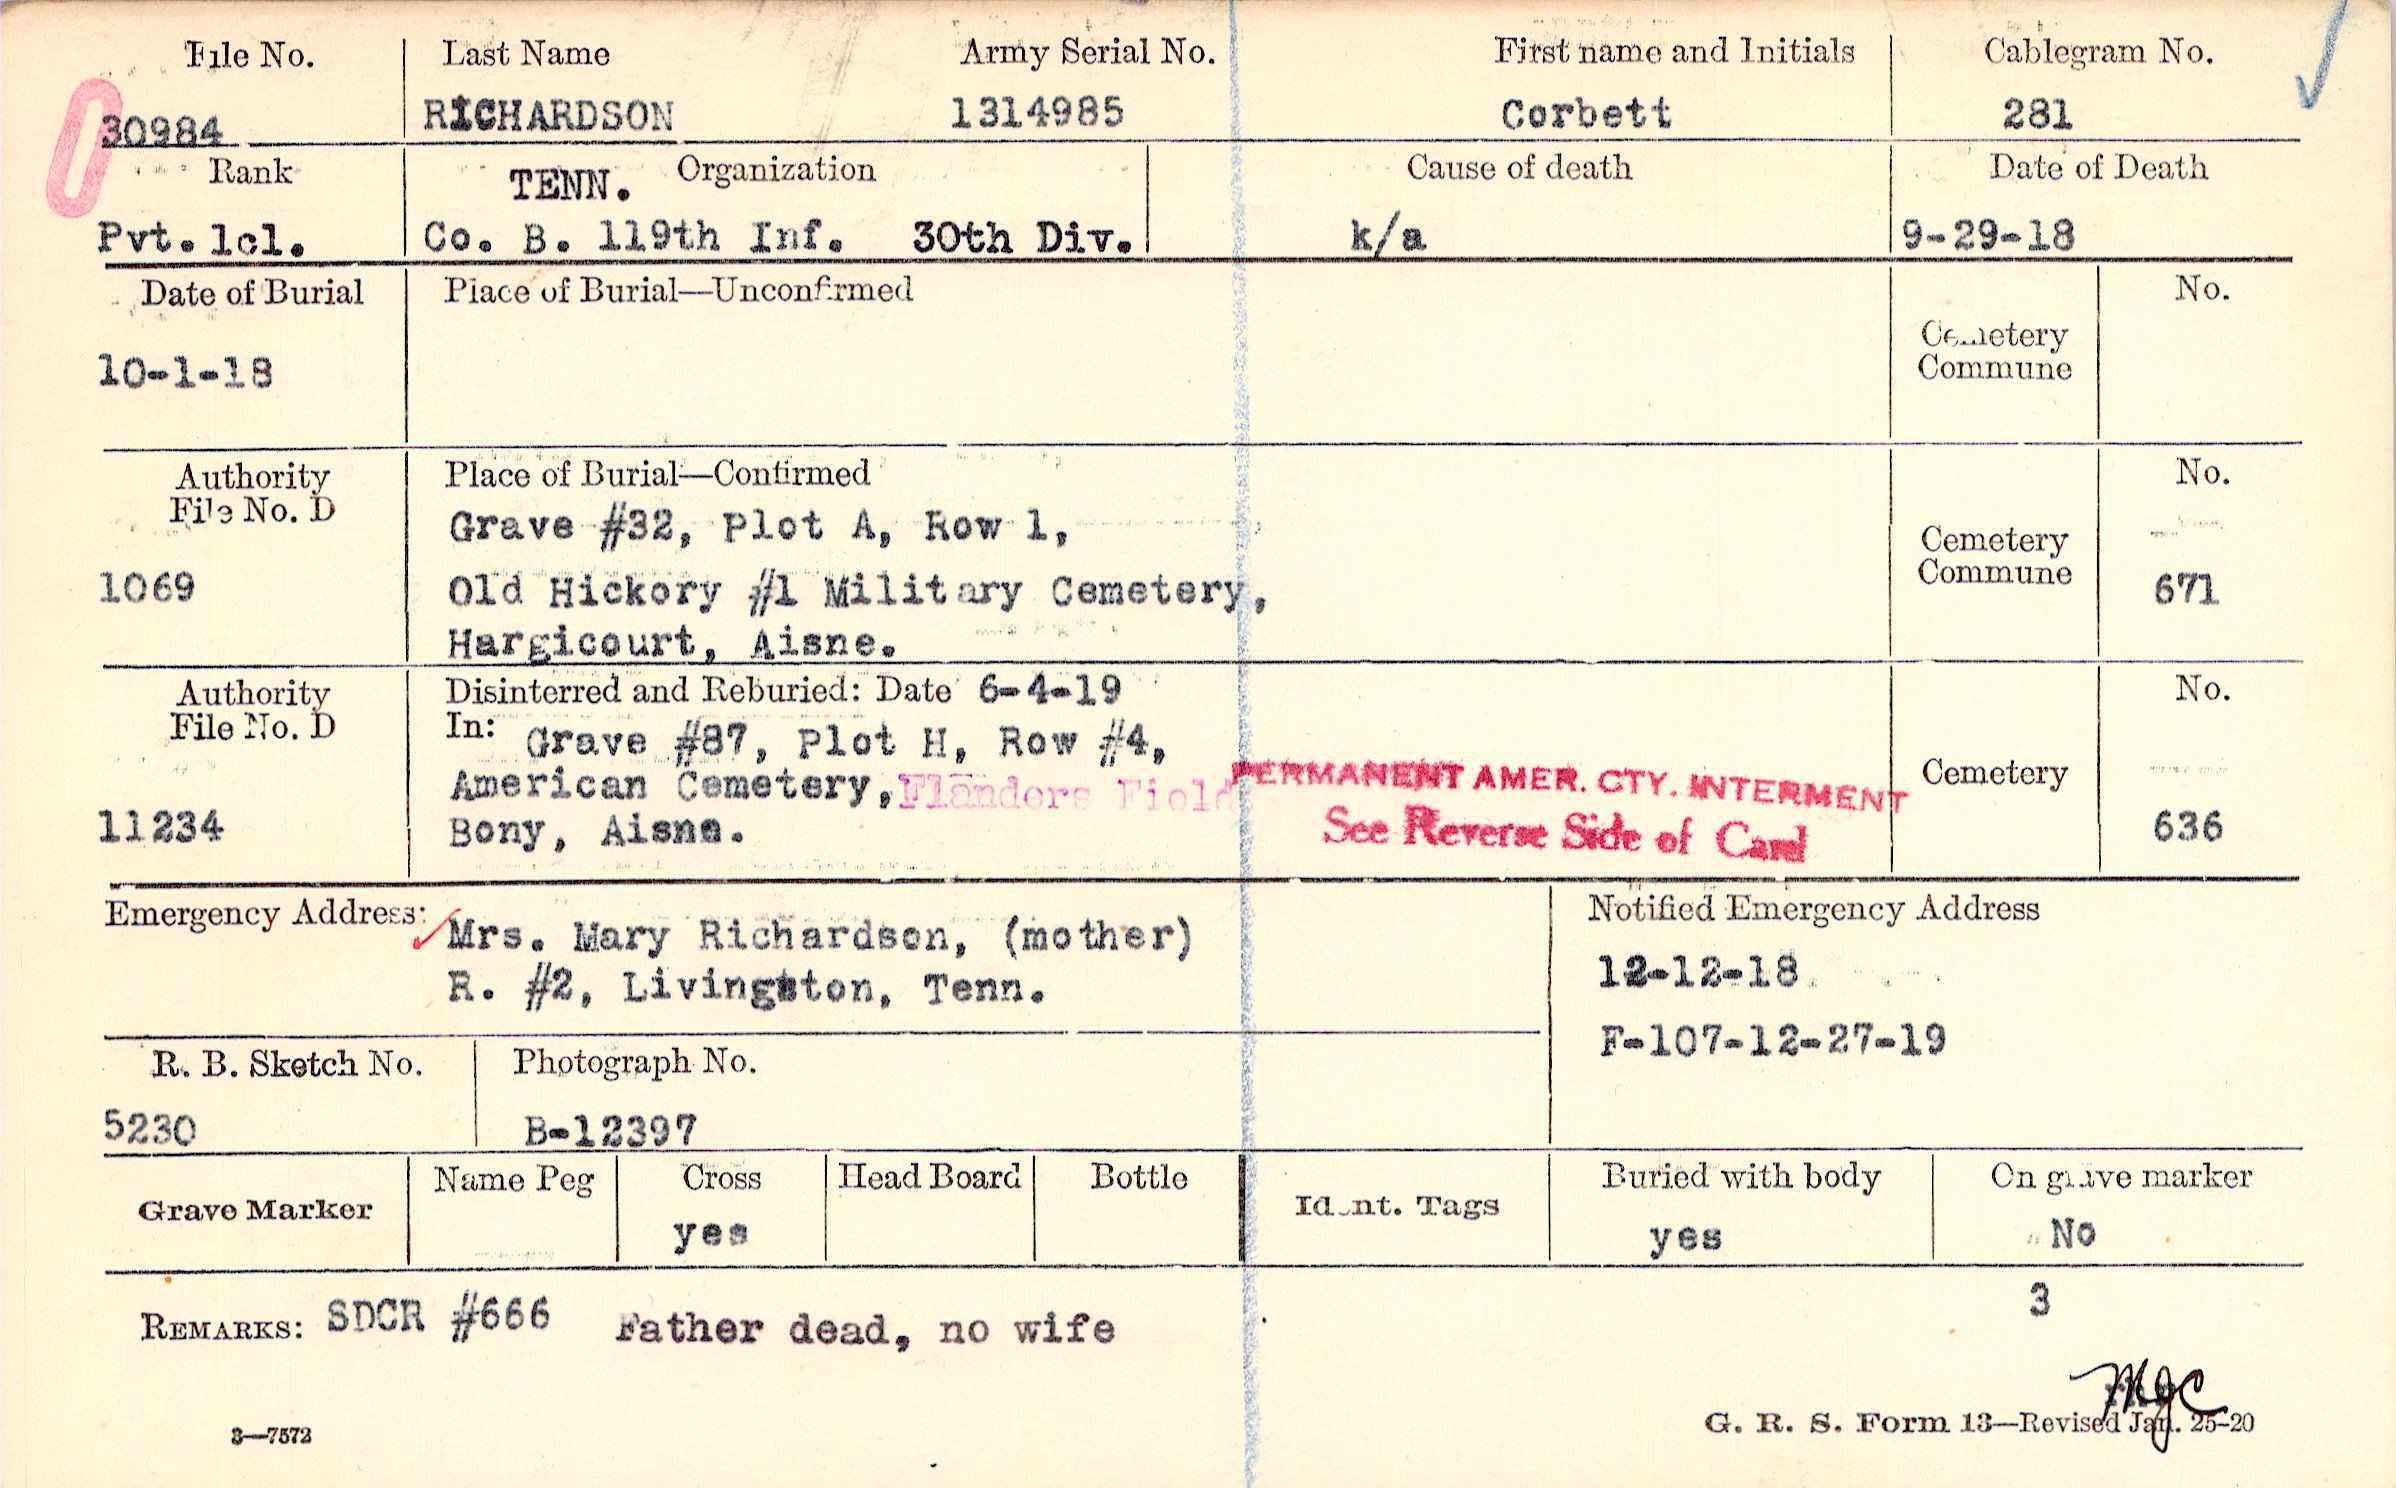 File No.
Last Name
Army Serial No.
First name and Initials
Cablegram No.
30984
RICHARDSON
1314985
Corbett
281
Rank
TENN.
Organization
Cause of death
Date of Death
Pvt.1cl.
Co. B. 119th Inf. 30th Div.
k/a
9-29-18
Date of Burial
Place of Burial—Unconfirmed
No.
Cemetery
Commune
10-1-18
Authority
File No. D
Place of Burial—Confirmed
No.
Grave #32, Plot A, Row 1,
Cemetery
Commune
1069
Old Hickory #1 Military Cemetery,
671
Hargicourt, Aisne.
Authority
File No. D
Disinterred and Reburied: Date 6-4-19
No.
In: Grave #87, Plot H, Row #4,
American Cemetery, Flanders Field
PERMANENT AMER. CTY. INTERMENT
Cemetery
11234
Bony, Aisne.
See Reverse Side of Card
636
Emergency Address:
Mrs. Mary Richardson, (mother)
R. #2, Livingston, Tenn.
Notified Emergency Address
12-12-18
F-107-12-27-19
R. B. Sketch No.
Photograph No.
5230
B-12397
Grave Marker
Name Peg
Cross
Head Board
Bottle
Ident. Tags
Buried with body
On grave marker
yes
yes
No
3
REMARKS: SDCR #666 Father dead, no wife
MJC
3—7572
G. R. S. Form 13—Revised Jan. 25-20